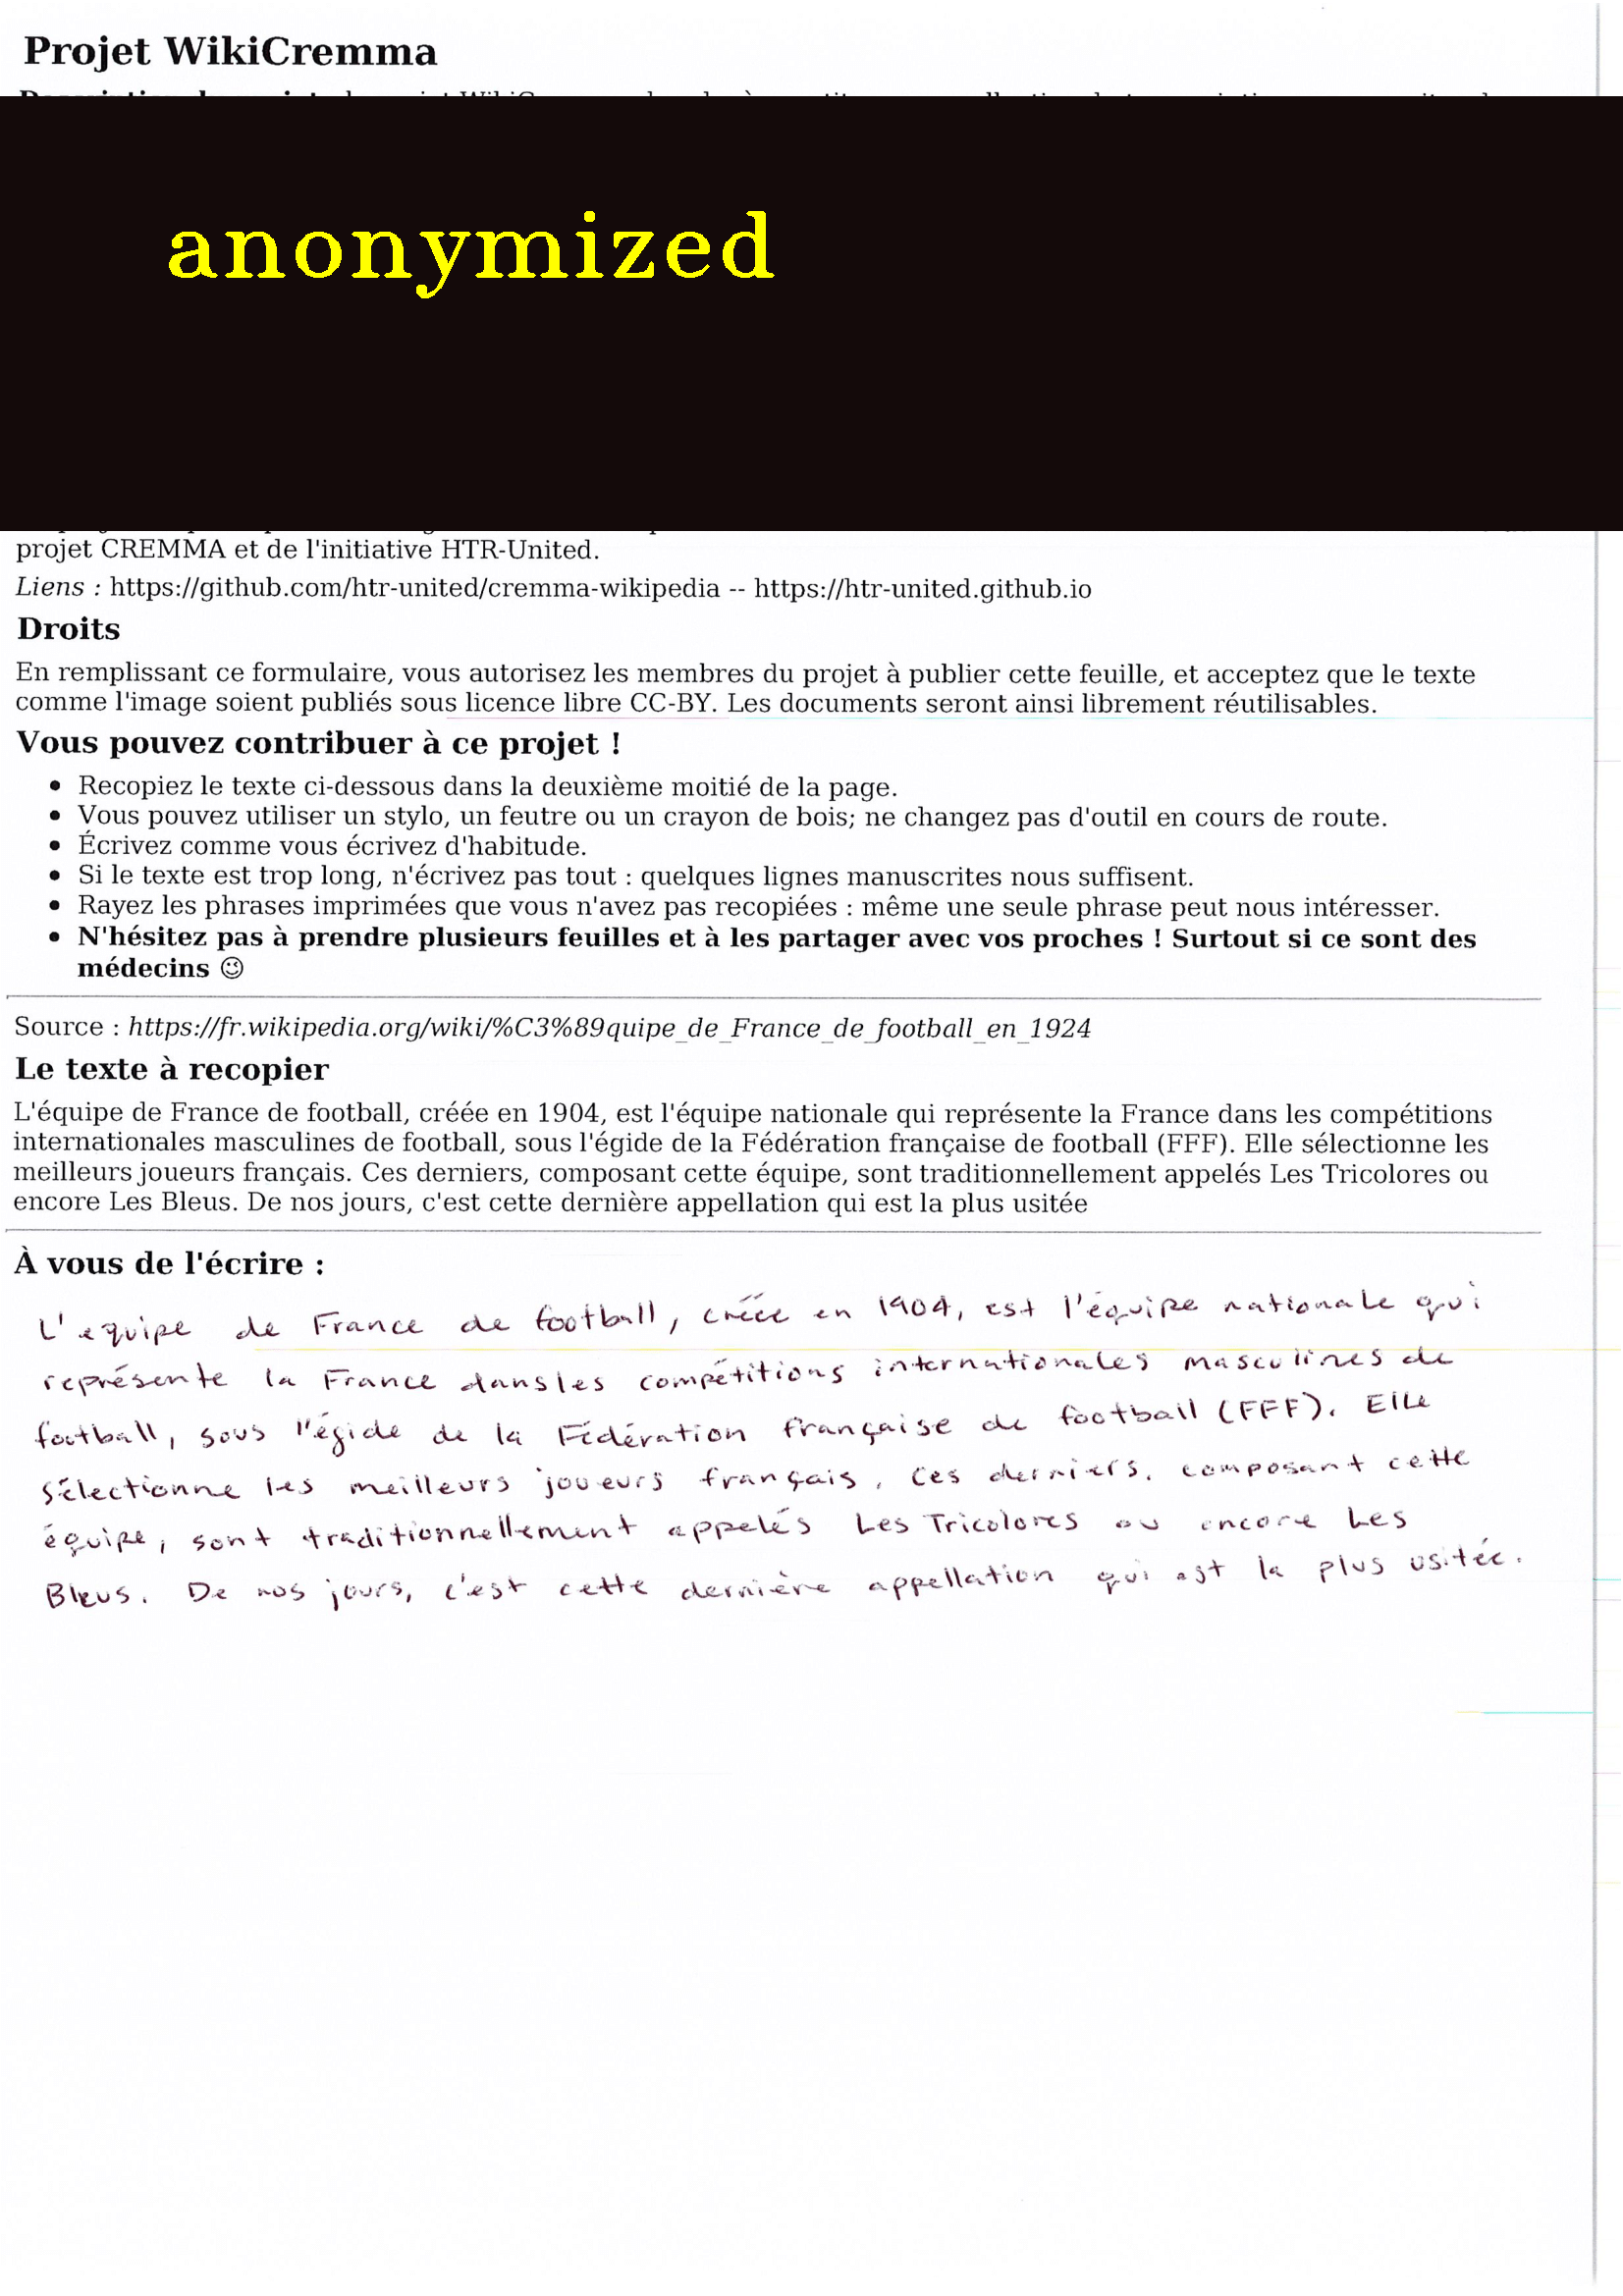 Projet WikiCremma
anonymized
projet CREMMA et de l'initiative HTR-United.
Liens : https://github.com/htr-united/cremma-wikipedia -- https://htr-united.github.io
Droits
En remplissant ce formulaire, vous autorisez les membres du projet à publier cette feuille, et acceptez que le texte
comme l'image soient publiés sous licence libre CC-BY. Les documents seront ainsi librement réutilisables.
Vous pouvez contribuer à ce projet !
• Recopiez le texte ci-dessous dans la deuxième moitié de la page.
• Vous pouvez utiliser un stylo, un feutre ou un crayon de bois; ne changez pas d'outil en cours de route.
• Écrivez comme vous écrivez d'habitude.
• Si le texte est trop long, n'écrivez pas tout : quelques lignes manuscrites nous suffisent.
• Rayez les phrases imprimées que vous n'avez pas recopiées : même une seule phrase peut nous intéresser.
• N'hésitez pas à prendre plusieurs feuilles et à les partager avec vos proches ! Surtout si ce sont des
médecins 😉
Source : https://fr.wikipedia.org/wiki/%C3%89quipe_de_France_de_football_en_1924
Le texte à recopier
L'équipe de France de football, créée en 1904, est l'équipe nationale qui représente la France dans les compétitions
internationales masculines de football, sous l'égide de la Fédération française de football (FFF). Elle sélectionne les
meilleurs joueurs français. Ces derniers, composant cette équipe, sont traditionnellement appelés Les Tricolores ou
encore Les Bleus. De nos jours, c'est cette dernière appellation qui est la plus usitée
À vous de l'écrire :
L'equipe de France de football, créée en 1904, est l'équipe nationale qui
représente la France dans les compétitions internationales masculines de
football, sous l'égide de la Fédération française de football (FFF). Elle
sélectionne les meilleurs joueurs français. Ces derniers, composant cette
équipe, sont traditionnellement appelés Les Tricolores ou encore Les
Bleus. De nos jours, c'est cette dernière appellation qui est la plus usitée.